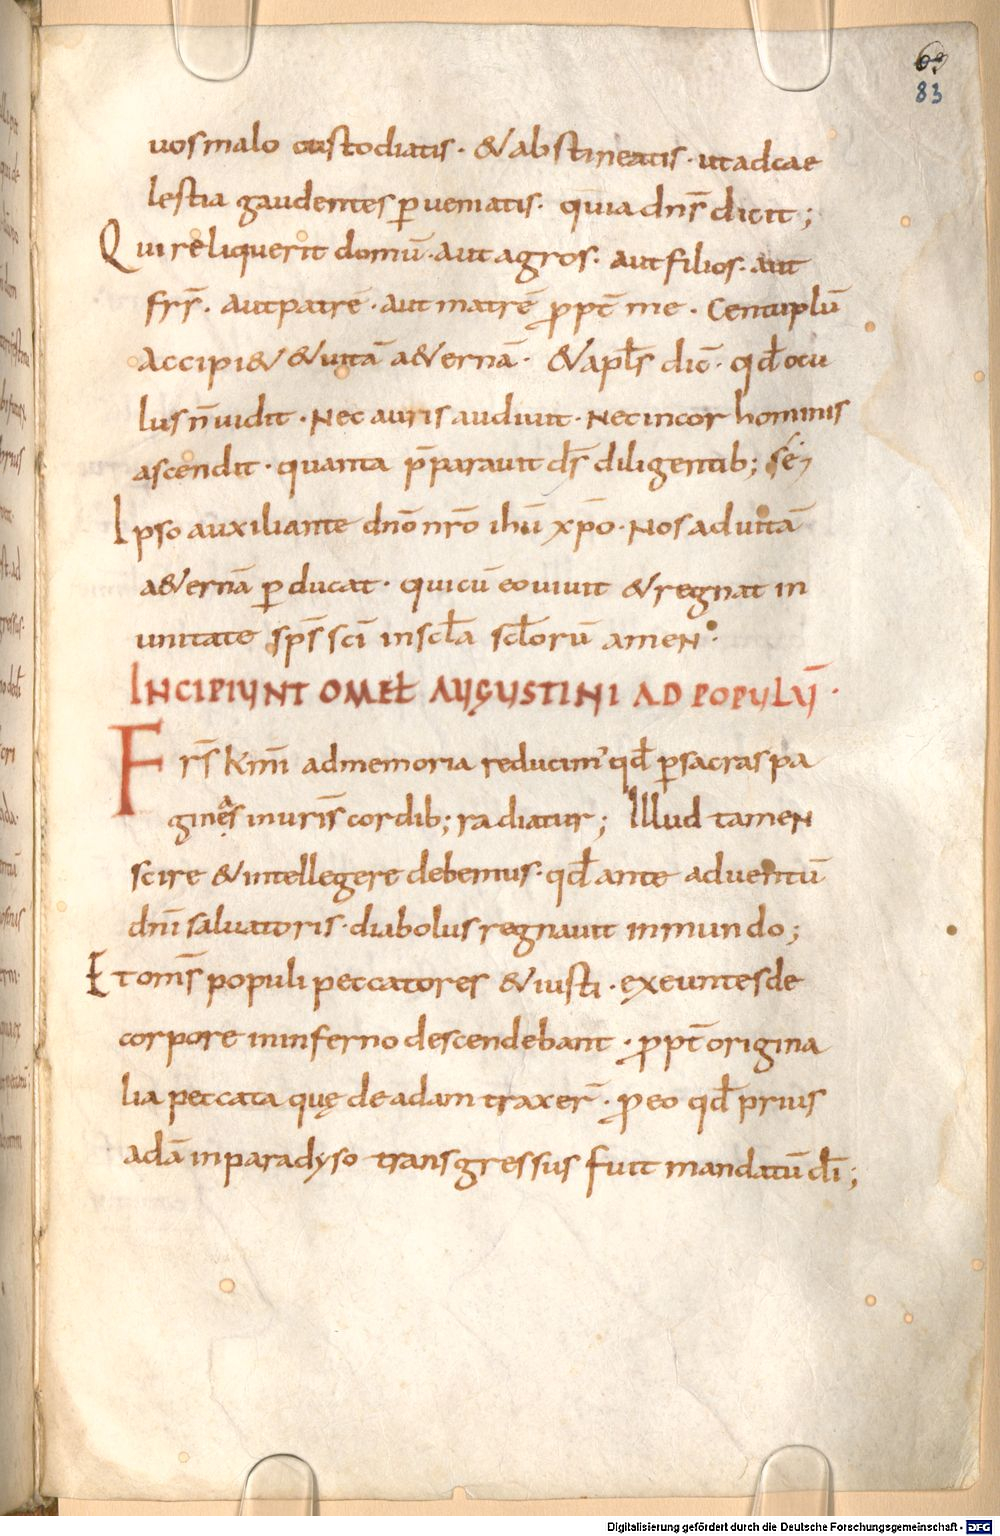 69
83
uos malo custodiatis · & abstineatis · ut ad cae
lestia gaudentes p̱ueniatis · quia dn̄s dicit ;
Qui reliquerit domū · aut agros · aut filios · aut
frs̄ · aut patrē · aut matrē ꝓpt̄ me · Centuplū
Accipi& & uitā a&ernā · & apl̄s dic̄ · qd̄ ocu
lus n̄ uidit · Nec auris audiuit · Nec in cor hominis
ascendit · quanta p̄parauit ds̄ diligentib; se;
Ipso auxiliante dnō nrō ihū xp̄o · Nos ad uitā
a&ernā p̱ducat · qui cū eo uiuit & regnat in
unitate sp̄s sc̄i in scl̄a scl̄orū ameN ·
INCIPIUNT OMEL̄ AUGUSTINI AD POPULŪ ·
Frs̄ km̄i ad memoria reducim' qd̄ p̱ sacras pa
ginęas in uris̄ cordib; radiatur ; Illud tameN
scire & intellegere debemus · qd̄ ante aduentū
dn̄i saluatoris · diabolus regnauit in mundo ;
Et oms̄ populi peccatores & iusti · exeuntes de
corpore in inferno descendebant · ꝓpt̄ origina
lia peccata quę de adam traxer̄ · ꝓ eo qd̄ prius
adā in paradyso transgressus fuit mandatū dī ;
Digitalisierung gefördert durch die Deutsche Forschungsgemeinschaft - DFG